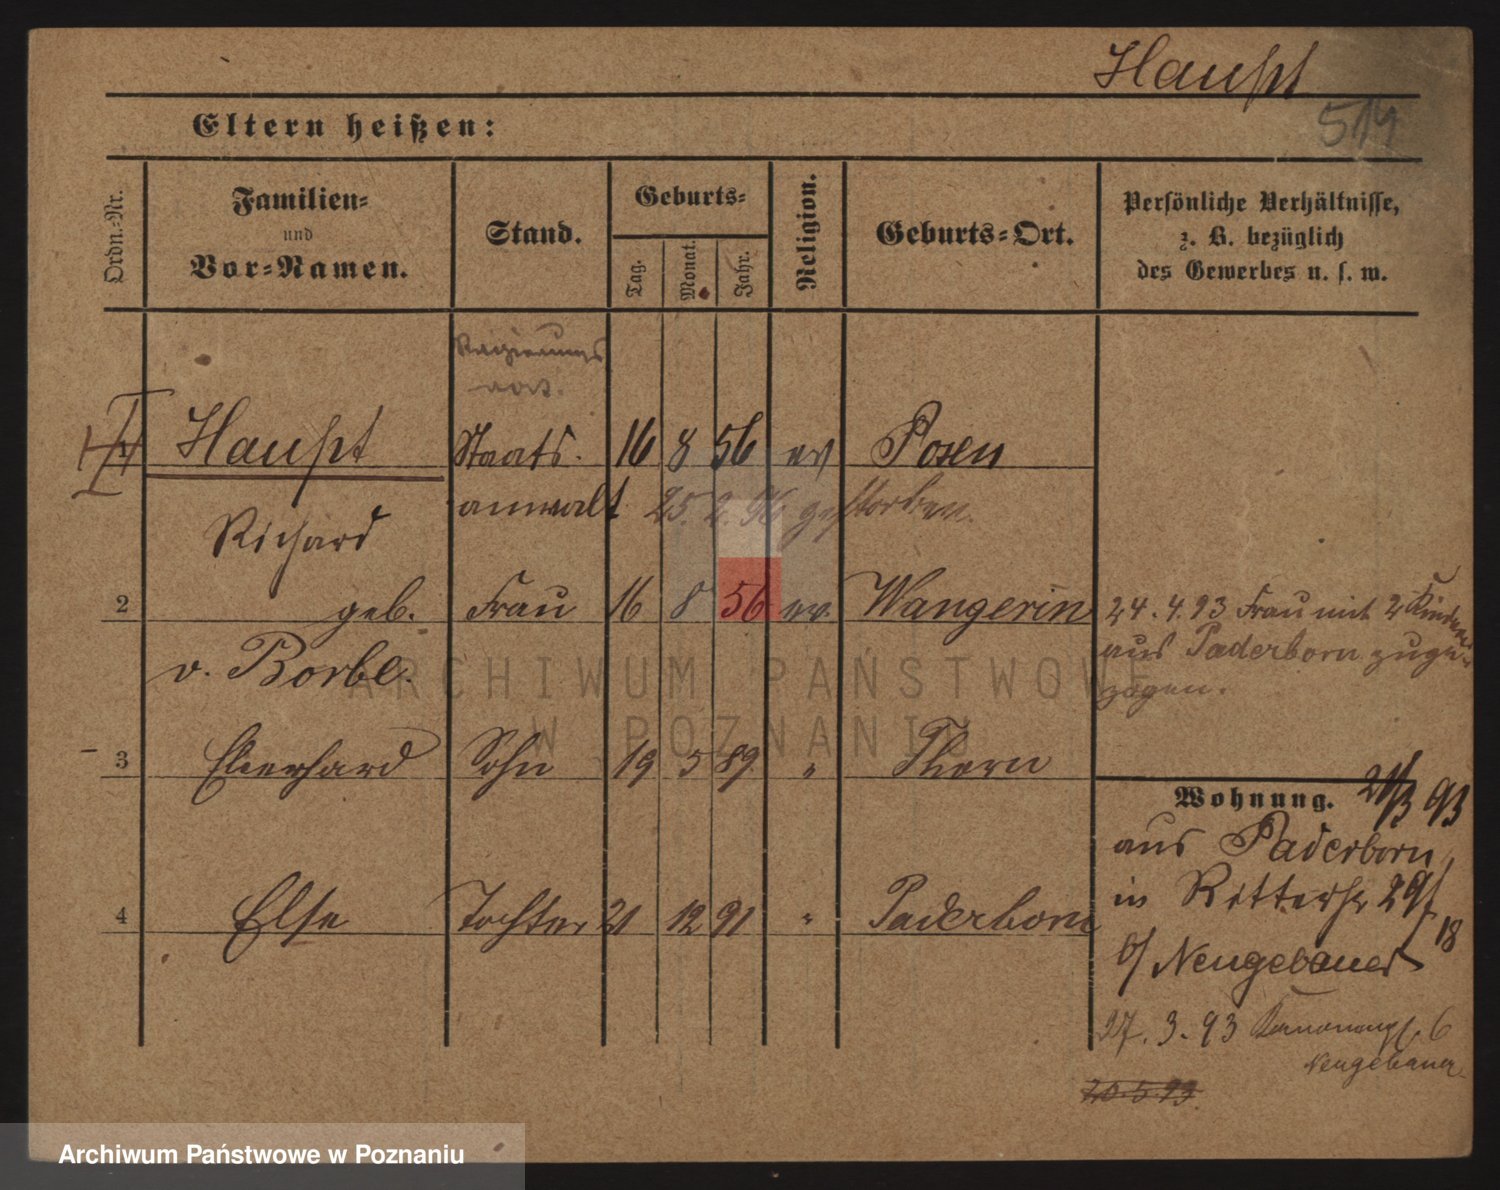 Haupt
514
Eltern heißen:
Ordn.-Nr.
Familien-
und
Vor-Namen.
Stand.
Geburts-
Tag.
Monat.
Jahr.
Religion.
Geburts-Ort.
Persönliche Verhältnisse,
z. B. bezüglich
des Gewerbes u. s. w.
Regierungs
Haupt Staats- 16 8 56 ev Posen
anwalt 25. 2. 96 gestorben.
Richard
2 geb. Frau 16 8 56 ev. Wangerin
v. Borbe.
24. 4. 93 Frau mit 2 Kindern
aus Paderborn zuge-
zogen.
3 Eberhard Sohn 19 5 89 " Thorn
Wohnung. 21/3 93
aus Paderborn,
4 Else Tochter 21 12 91 " Paderborn
in Ritterstr 29/
18
b/ Neugebauer
27. 3. 93 6
Neugebauer
20.5.93
ARCHIWUM PAŃSTWOWE
W POZNANIU
Archiwum Państwowe w Poznaniu